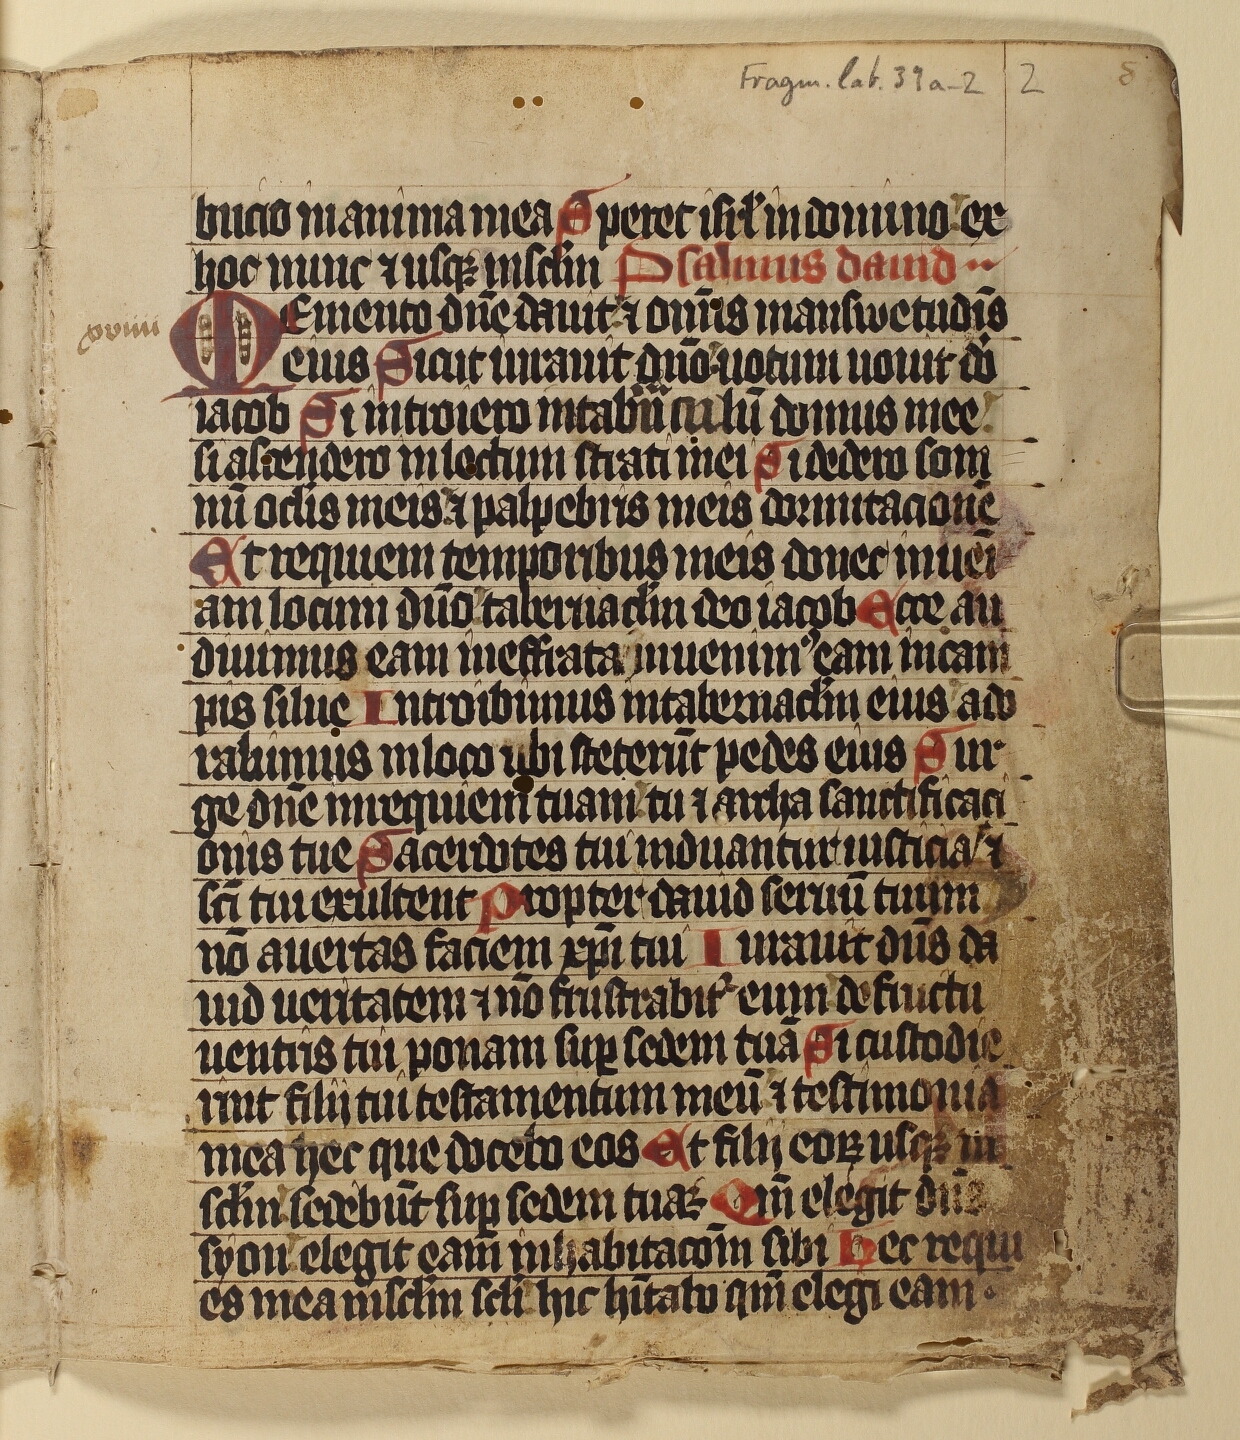 Fragm. lat. 39a-2 2
bucio in anima mea Speret isrl̄ in domino ex
hoc nunc ⁊ usqꝫ in sclm̄ Psalmus dauid
xviiii
Memento dn̄e dauit ⁊ omīs manswetudīs
eius Sicut iurauit dn̄o uotum uouit dō
iacob Si introiero in tabn̄culū domus mee
si ascendero in lectum strati mei Si dedero som
nū oclīs meis ⁊ palpebris meis dormitacionē
Et requiem temporibus meis donec inueī
am locum dn̄o tabernaclm̄ deo iacob Ecce au
diuimus eam in effrata inuenimꝰ eam in cam
pis silue Introibimus in tabernaclm̄ eius ado
rabimus in loco ubi steterūt pedes eius Sur
ge dn̄e in requiem tuam tu ⁊ archa sanctificaci
onis tue Sacerdotes tui induantur iusticia ⁊
scī tui exultent Propter dauid seruū tuum
nō auertas faciem xp̄i tui Iurauit dn̄s da
uid ueritatem ⁊ nō frustrabit᷑ eum de fructu
uentris tui ponam suꝑ sedem tuā Si custodie
rint filij tui testamentum meū ⁊ testimonia
mea hec que docebo eos Et filij eoꝝ usqꝫ in
sclm̄ sedebūt suꝑ sedem tuaꝫ Qm̄ elegit dn̄s
syon elegit eam in habitacōm sibi Hec requi
es mea in sclm̄ sclī hic hītabo qm̄ elegi eam